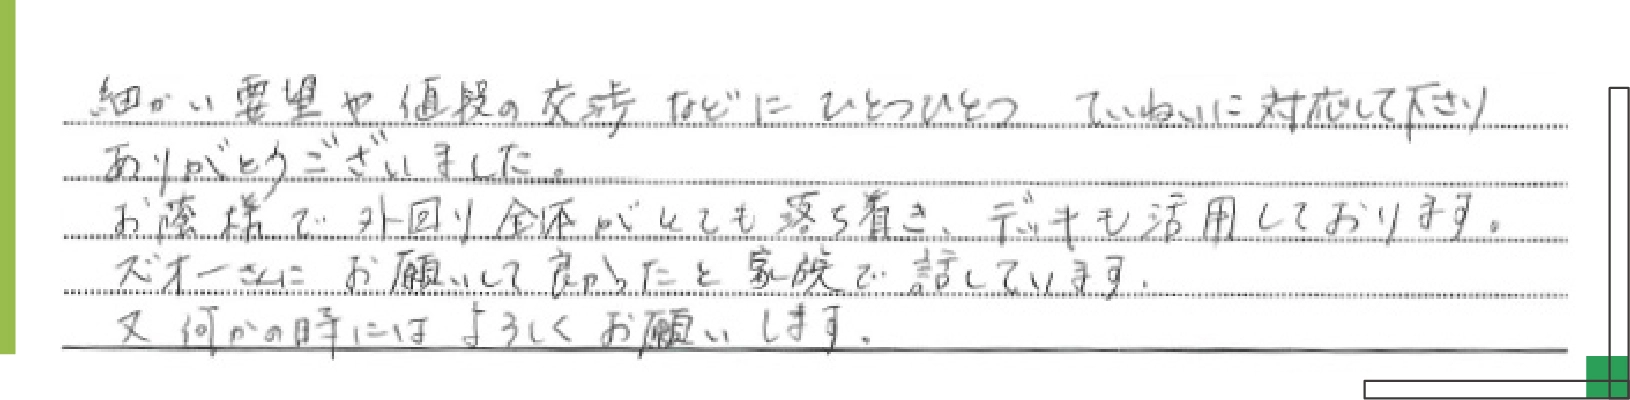 細かい要望や値段の交渉などにひとつひとつ ていねいに対応して下さり
ありがとうございました。
お蔭様で外回り全体がとても落ち着き、デッキも活用しております。
ズオーさんにお願いして良かったと家族で話しています。
又何かの時にはよろしくお願いします。